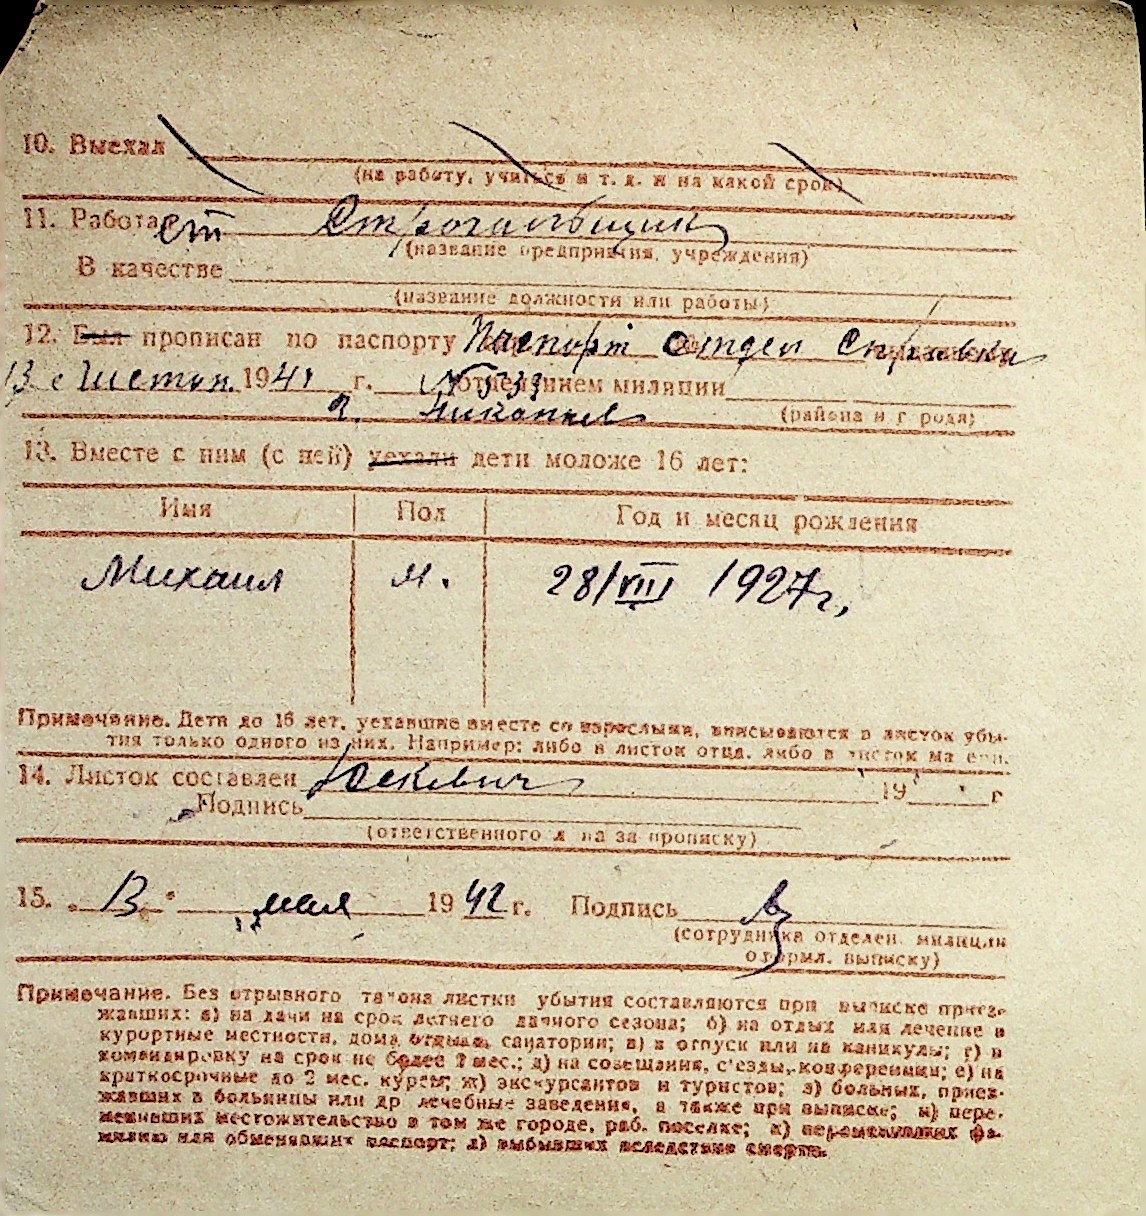 10. Выехал
(на работу, учиться и т. д. и на какой срок)
11. Работает Строгальщик
(название предприятия, учреждения)
В качестве
(название должности или работы)
12. Был прописан по паспорту Паспорт отдел Справка
13 Листоп. 1941 г. № 533 отделением милиции
г. Никополь (района и города)
13. Вместе с ним (с ней) уехали дети моложе 16 лет:
Имя Пол Год и месяц рождения
Михаил м. 28/VIII 1927 г,
Примечание. Дети до 16 лет, уехавшие вместе со взрослыми, вписываются в листок убы-
тия только одного из них. Например: либо в листок отца, либо в листок матери.
14. Листок составлен 19 г
Подпись
(ответственного л на за прописку)
15. 13 мая 1942 г. Подпись
(сотрудника отделен. милиции
оформл. выписку)
Примечание. Без отрывного талона листки убытия составляются при выписке приез-
жавших: а) на дачи на срок летнего дачного сезона; б) на отдых или лечение в
курортные местности, дома отдыха, санатории; в) в отпуск или на каникулы; г) в
командировку на срок не более 2 мес.; д) на совещания, с'езды, конференции; е) на
краткосрочные до 2 мес. курсы; ж) экскурсантов и туристов; з) больных, приез-
жавших в больницы или др лечебные заведения, а также при выписке; и) пере-
менивших местожительство в том же городе, раб. поселке; к) переменивших фа-
милию или обменявших паспорт; л) выбывших вследствие смерти.